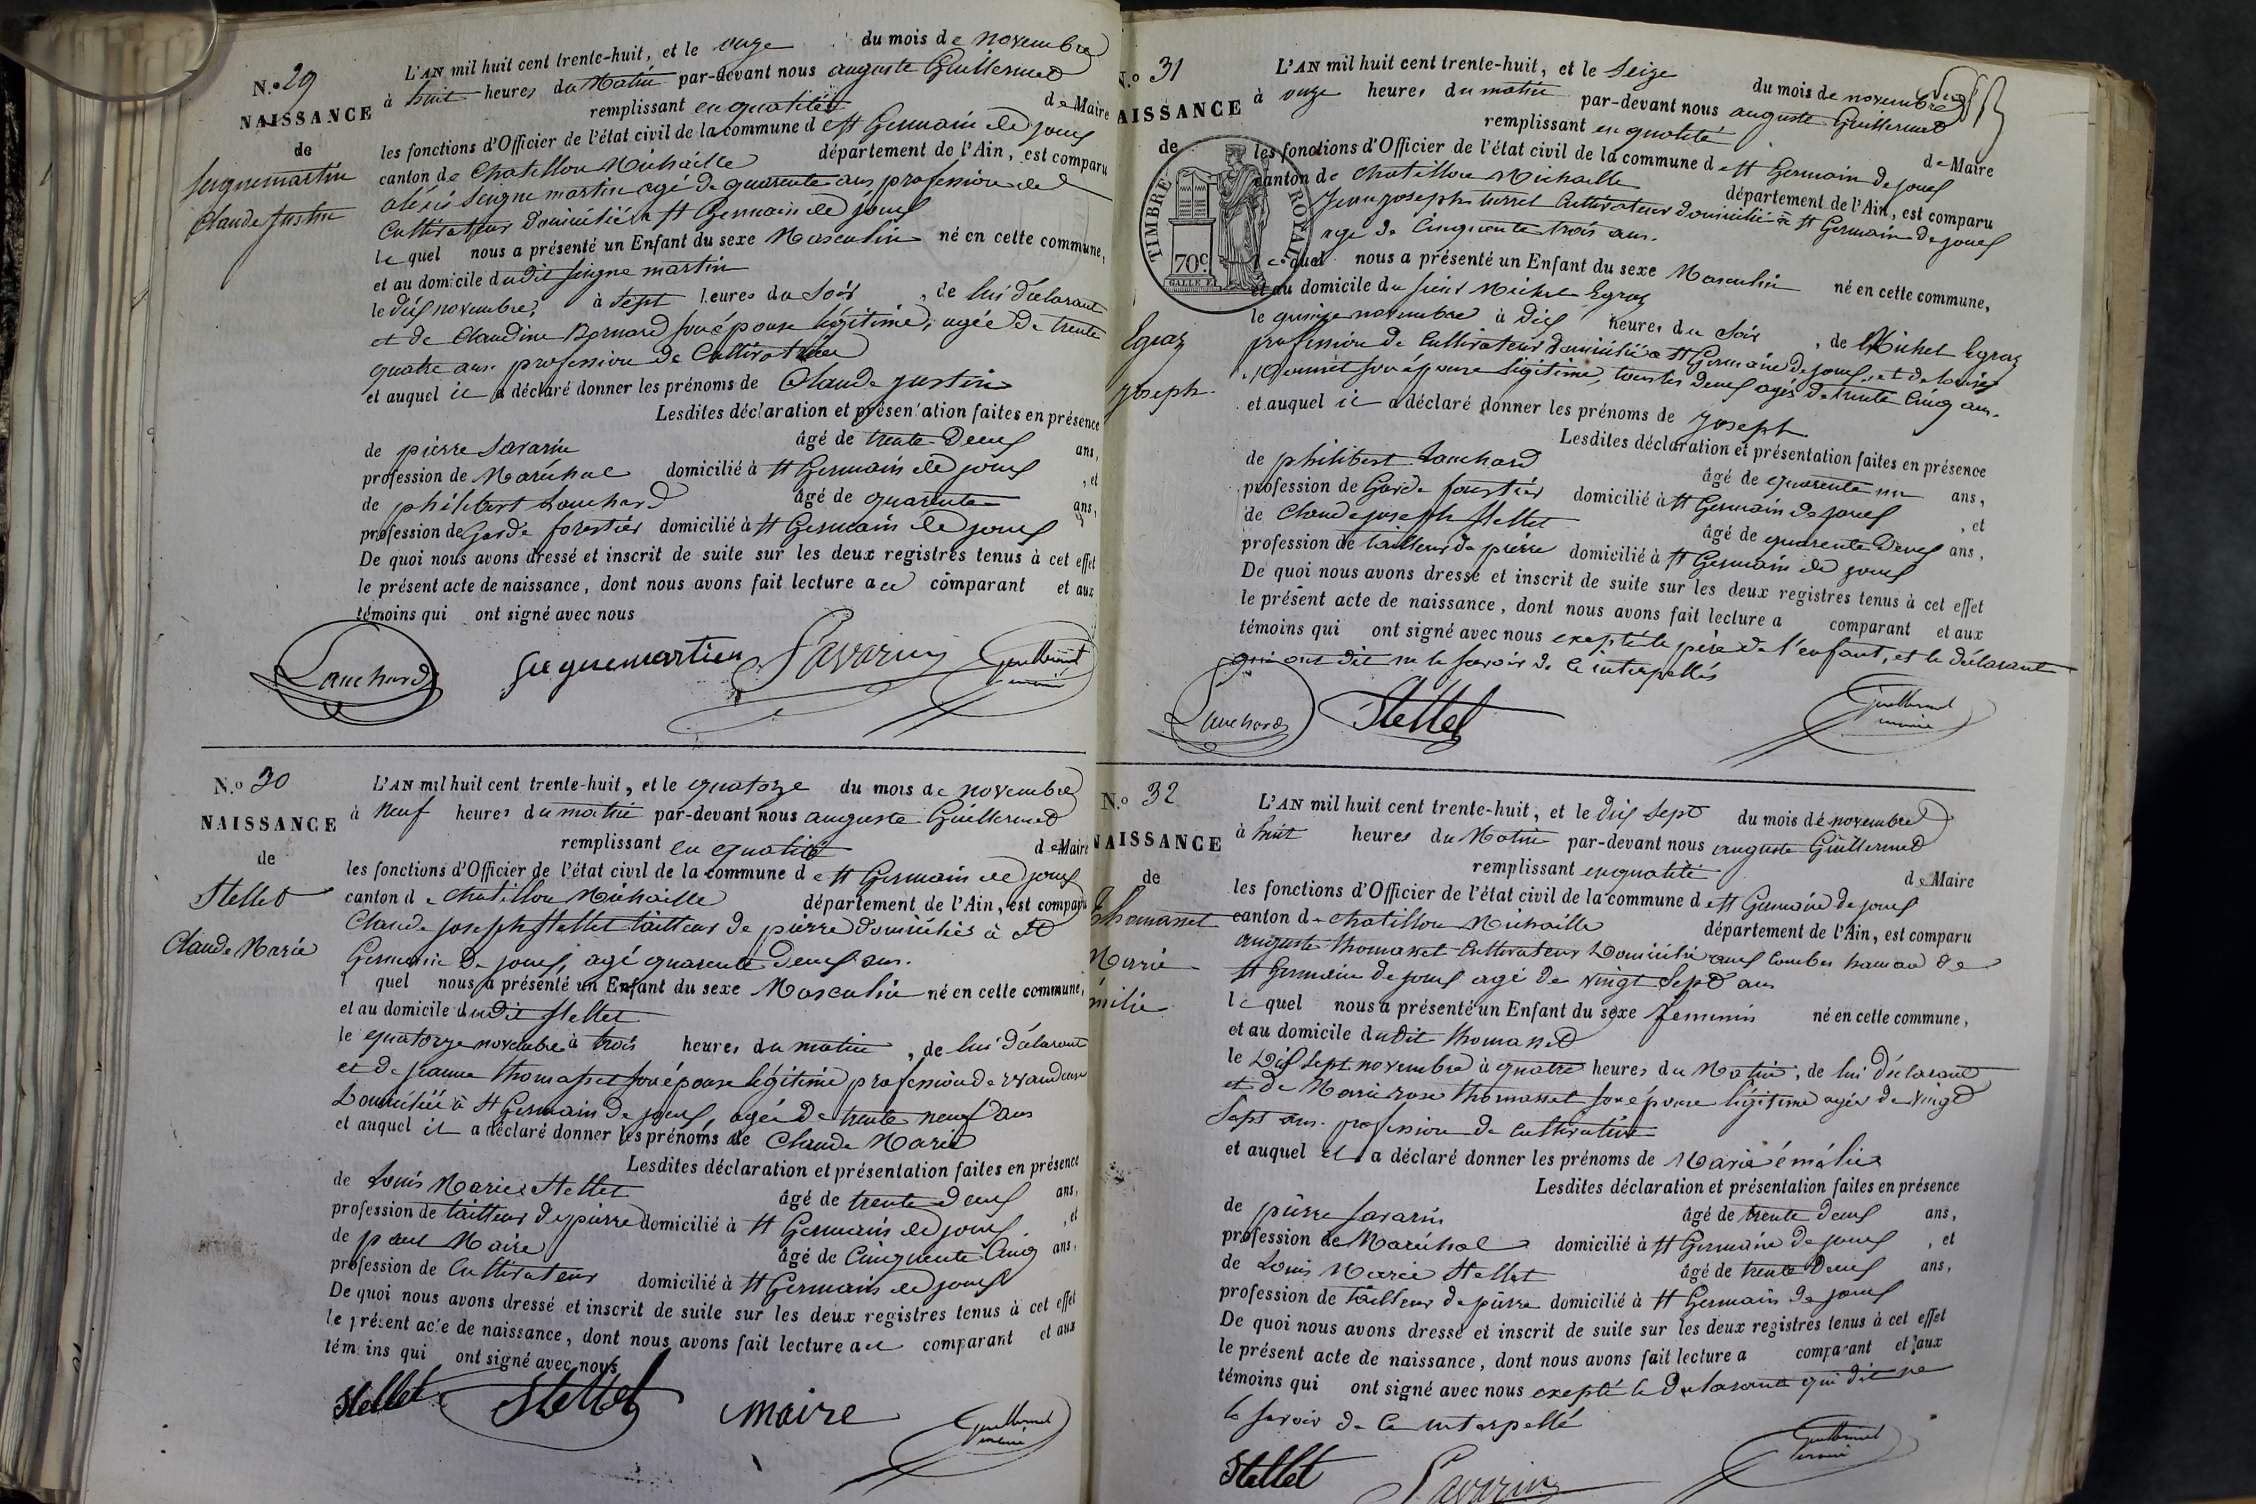 N.o 29
NAISSANCE
de
Seignemartin
Claude Justin
L'AN mil huit cent trente-huit, et le onze du mois de novembre
à huit heures du Matin par-devant nous auguste Guillermet
remplissant en qualité de Maire
les fonctions d'Officier de l'état civil de la commune de St Germain de joux
canton de Chatillon Michaille département de l'Ain, est comparu
aléxis Seigne martin agé de quarente ans profession de
Cultivateur domicilié a St Germain de joux
le quel nous a présenté un Enfant du sexe Masculin né en cette commune,
et au domicile dudit Seigne martin
le dix novembre, à Sept heures du Soir, de lui déclarant
et de Claudine Bernard son épouse légitime, agée de trente
quatre ans profession de Cultivatrice
et auquel il a déclaré donner les prénoms de Claude justin
Lesdites déclaration et présentation faites en présence
de pierre Savarin âgé de trente deux ans,
profession de Maréchal domicilié à St Germain de joux, et
de philibert Lauchard âgé de quarente ans,
profession de Garde forestier domicilié à St Germain de joux
De quoi nous avons dressé et inscrit de suite sur les deux registres tenus à cet effet
le présent acte de naissance, dont nous avons fait lecture au comparant et aux
témoins qui ont signé avec nous
Lauchard Seignemartin Savarin Guillermet maire
N.o 30
NAISSANCE
de
Stellet
Claude Marie
L'AN mil huit cent trente-huit, et le quatorze du mois de novembre
à Neuf heures du matin par-devant nous auguste Guillermet
remplissant en qualité de Maire
les fonctions d'Officier de l'état civil de la commune de St Germain de joux
canton de Chatillon Michaille département de l'Ain, est comparu
Claude joseph Stellet tailleur de pierre domicilié à St
Germain de joux, agé quarente deux ans.
quel nous a présenté un Enfant du sexe Masculin né en cette commune,
et au domicile dudit Stellet
le quatorze novembre à trois heures du matin, de lui déclarant
et de jeanne thomasset son épouse légitime profession de
Domiciliée à St Germain de joux, agée de trente neuf ans
et auquel il a déclaré donner les prénoms de Claude Marie
Lesdites déclaration et présentation faites en présence
de Louis Marie Stellet âgé de trente deux ans,
profession de tailleur de pierre domicilié à St Germain de joux, et
de paul Maire âgé de Cinquente Cinq ans,
profession de Cultivateur domicilié à St Germain de joux
De quoi nous avons dressé et inscrit de suite sur les deux registres tenus à cet effet
le présent acte de naissance, dont nous avons fait lecture au comparant et aux
témoins qui ont signé avec nous
Stellet Stellet maire Guillermet maire
N.o 31
NAISSANCE
de
TIMBRE ROYAL
70c
Egraz
joseph
L'AN mil huit cent trente-huit, et le Seize du mois de novembre
à onze heures du matin par-devant nous auguste Guillermet
remplissant en qualité de Maire
les fonctions d'Officier de l'état civil de la commune de St Germain de joux
canton de Chatillon Michaille département de l'Ain, est comparu
Jean joseph turrel Cultivateur domicilié à St Germain de joux
age de Cinquente trois ans.
le quel nous a présenté un Enfant du sexe Masculin né en cette commune,
et au domicile du sieur Michel Egraz
le quinze novembre à dix heures du Soir, de Michel Egraz
profession de Cultivateur domicilié a St Germain de joux, et de louise
son épouse légitime, tous les deux agés de trente Cinq ans.
et auquel il a déclaré donner les prénoms de joseph
Lesdites déclaration et présentation faites en présence
de philibert Lauchard âgé de quarente un ans,
profession de Garde forestier domicilié à St Germain de joux, et
de Claude joseph Stellet âgé de quarente deux ans,
profession de tailleur de pierre domicilié à St Germain de joux
De quoi nous avons dressé et inscrit de suite sur les deux registres tenus à cet effet
le présent acte de naissance, dont nous avons fait lecture a comparant et aux
témoins qui ont signé avec nous exepté le père de l'enfant, et le déclarant
qui ont dit ne le savoir de ce interpellés
Lauchard Stellet Guillermet maire
N.o 32
NAISSANCE
de
thomasset
Marie
émilie
L'AN mil huit cent trente-huit, et le dix Sept du mois de novembre
à huit heures du Matin par-devant nous auguste Guillermet
remplissant en qualité de Maire
les fonctions d'Officier de l'état civil de la commune de St Germain de joux
canton de Chatillon Michaille département de l'Ain, est comparu
auguste thomasset Cultivateur Domicilié aux Combes hameau de
St Germain de joux agé de vingt Sept ans
le quel nous a présenté un Enfant du sexe feminin né en cette commune,
et au domicile dudit thomasset
le Dix Sept novembre à quatre heures du Matin, de lui déclarant
et de Marie rose thomasset son épouse légitime agée de vingt
Sept ans. profession de Cultivatrice
et auquel il a déclaré donner les prénoms de Marie émélie
Lesdites déclaration et présentation faites en présence
de pierre Savarin âgé de trente deux ans,
profession de Maréchal domicilié à St Germain de joux, et
de Louis Marie Stellet âgé de trente Deux ans,
profession de tailleur de pierre domicilié à St Germain de joux
De quoi nous avons dressé et inscrit de suite sur les deux registres tenus à cet effet
le présent acte de naissance, dont nous avons fait lecture a comparant et aux
témoins qui ont signé avec nous exepté le Déclarant qui dit ne
le savoir de ce interpellé
Stellet Savarin Guillermet maire